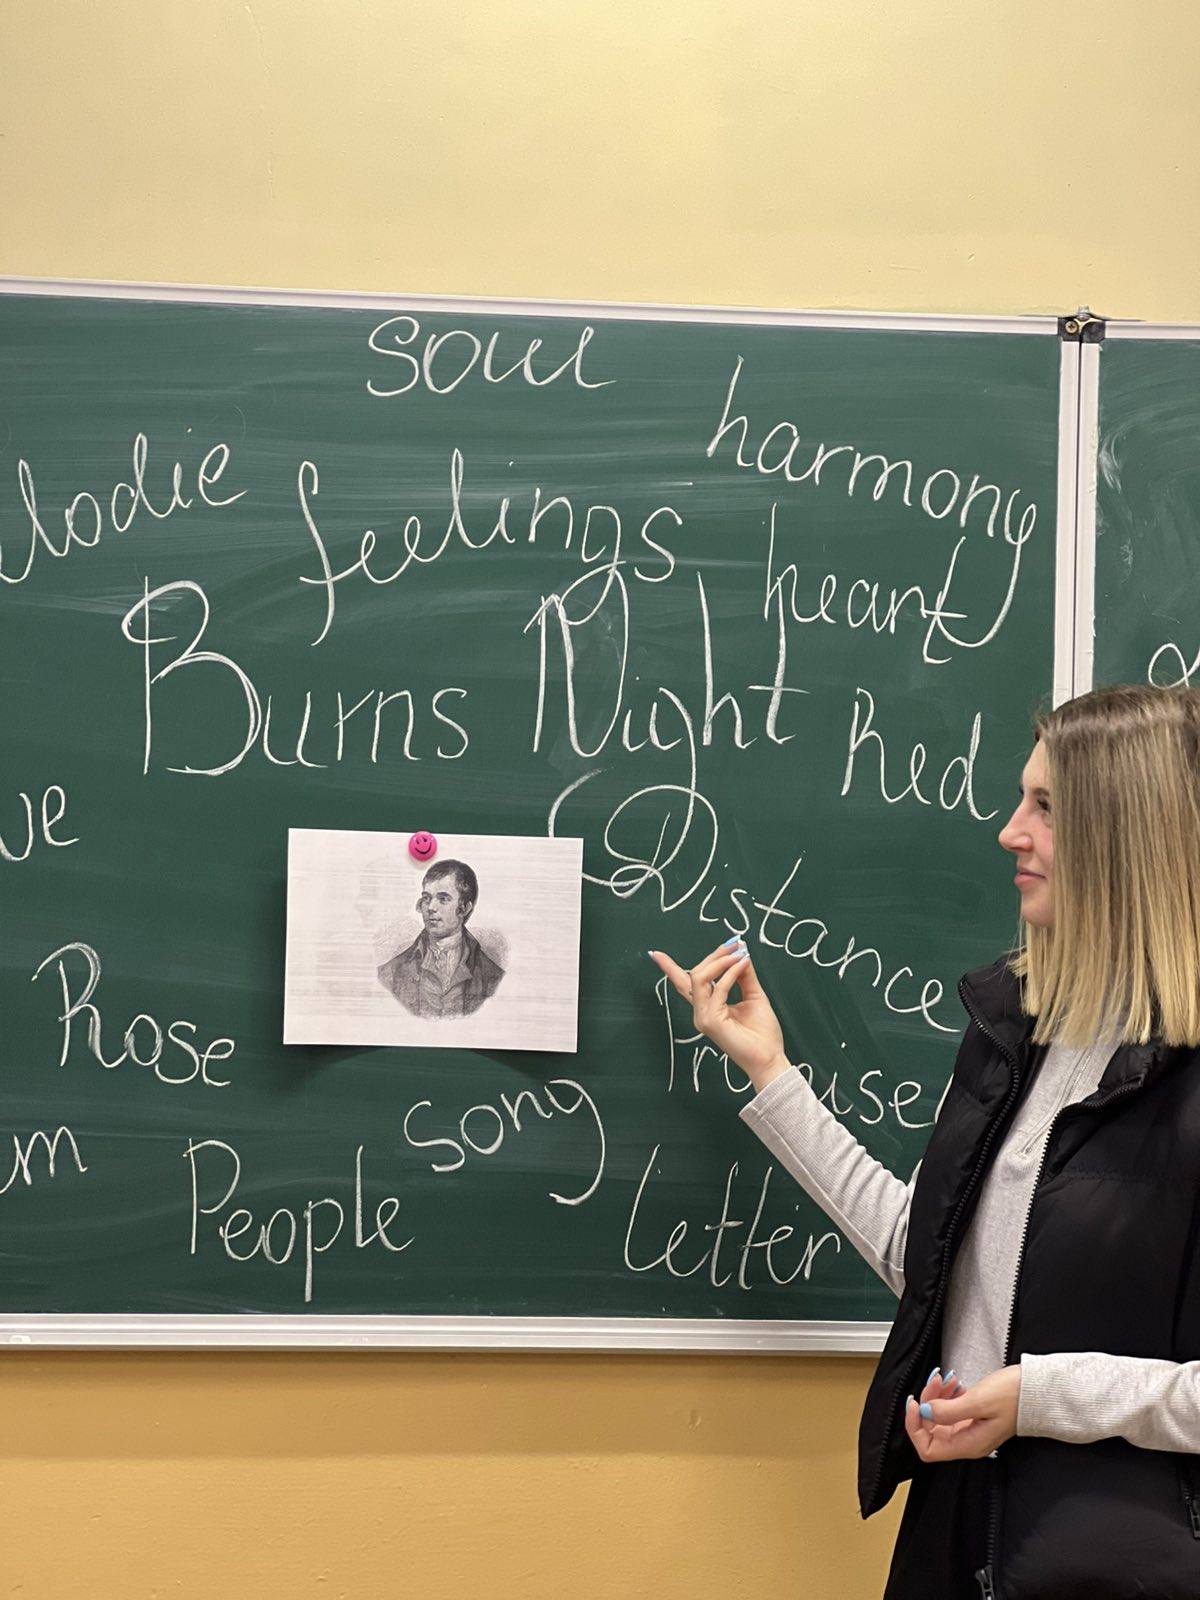 soul
harmony
lodie
feelings
heart
Burns Night
Red
ve
Distance
Rose
song
People
letter